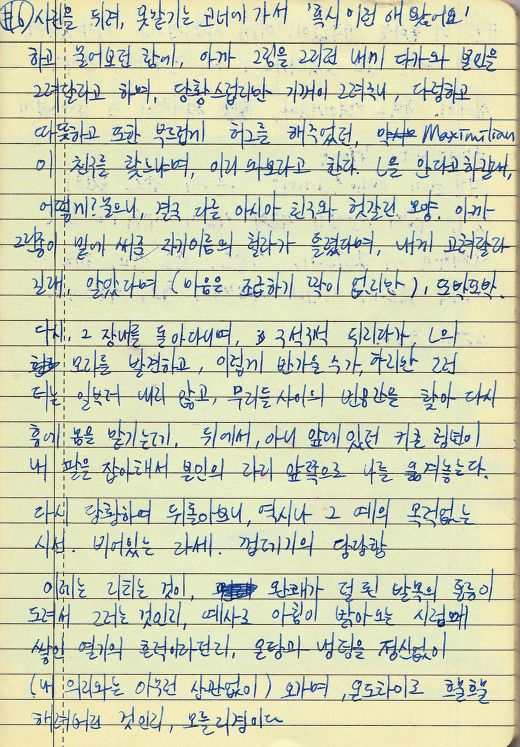 #6) 사람을 뒤려, 못맡기는 코너에 가서 '혹시 이런 애 왔어요'
하고 물어보던 참에, 아까 그림을 그리던 내게 다가와 본인을
그려달라고 하며, 당황스럽지만 기꺼이 그려주니, 다정하고
따뜻하고 또한 부드럽게 허그를 해주었던, Maximilian
이 친구를 찾느냐며, 이리 와보라고 한다. L을 안다고 하길래,
어떻게? 물으니, 결국 다른 아시아 친구와 헷갈린 모양. 아까
그림종이 밑에 써준 자기이름의 철자가 틀렸다며, 내게 고쳐달라
길래, 알았다며 (마음은 조급하기 짝이 없지만), 또박또박.
다시, 그 장내를 돌아다니며, 구석구석 뒤지다가, L의
머리를 발견하고, 이렇게 반가울 수가, 하지만 그런
티는 일부러 내지 않고, 무리들 사이의 빈공간을 찾아 다시
춤에 몸을 맡기는데, 뒤에서, 아니 앞에 있던 커플 청년이
내 팔을 잡아채서 본인의 다리 앞쪽으로 나를 옮겨놓는다.
다시 당황하여 뒤돌아보니, 역시나 그 예의 목적없는
시선. 비어있는 과세. 껍데기의 당당함
이제는 지치는 것이, 완쾌가 덜 된 발목의 통증이
도져서 그러는 것인지, 예사로 아침이 밝아오는 시점에
쌓인 열기의 흔적이라던지, 온탕과 냉탕을 정신없이
(내 의지와는 아무런 상관없이) 오가며, 온도차이로 흐물흐물
해져버린 것인지, 모를 지경이다